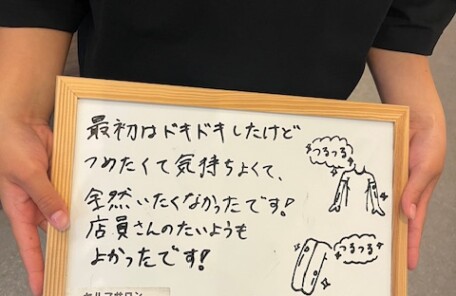 最初はドキドキしたけど
つめたくて気持ちよくて、
全然いたくなかったです!
店員さんのたいようも
よかったです!
つるつる
つるつる
セルフサロン